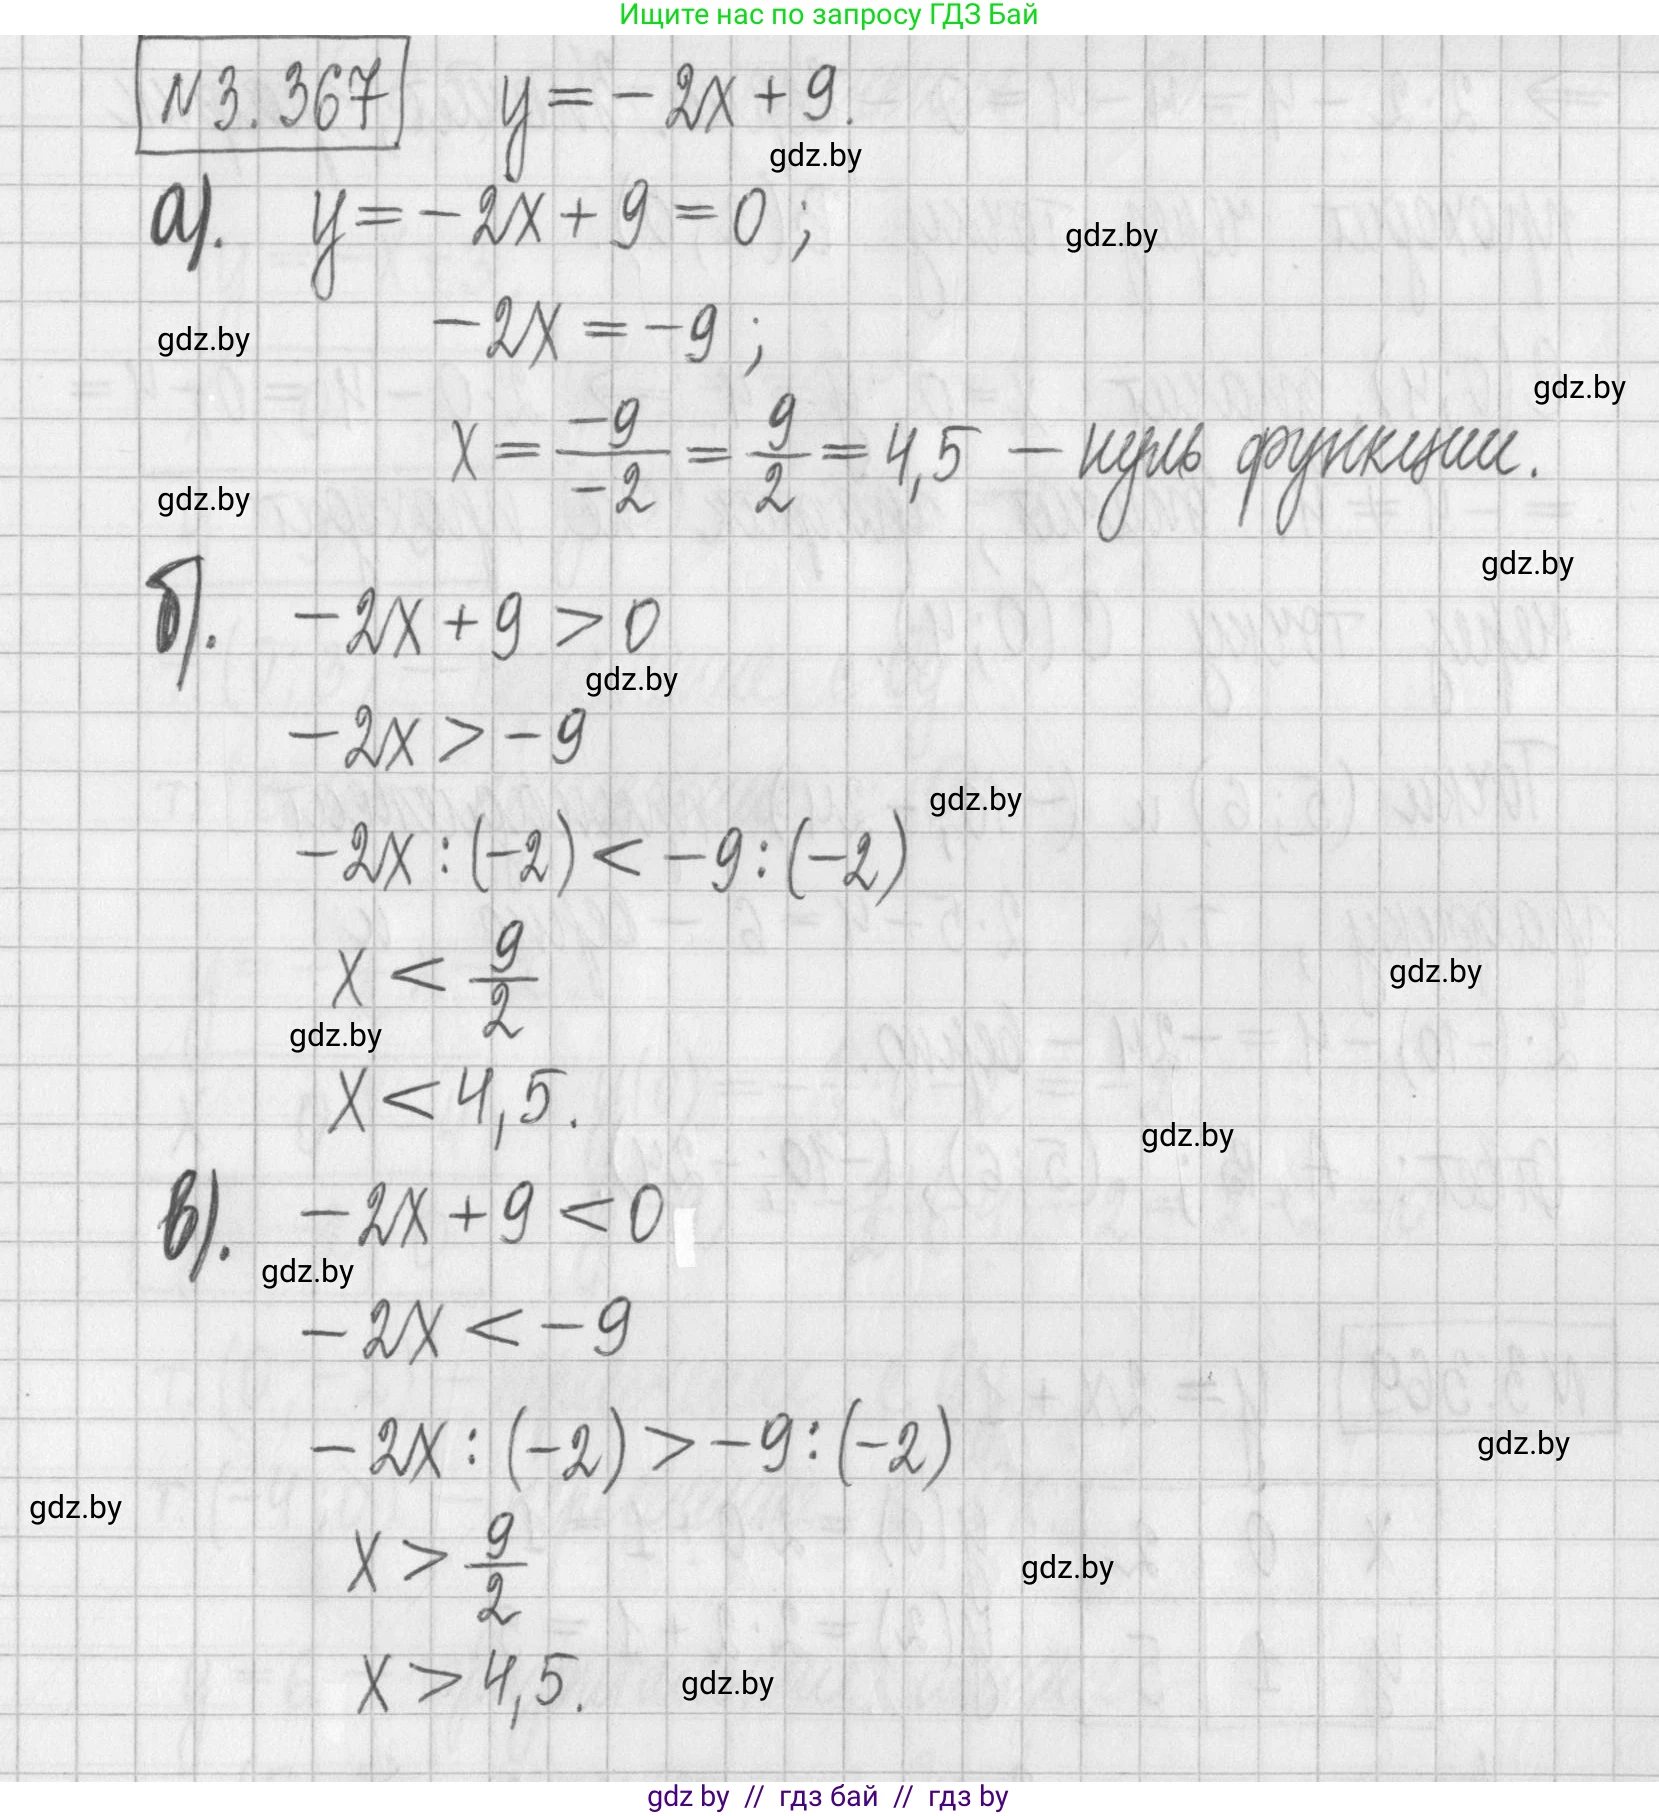 Ищите нас по запросу ГДЗ Бай
№3.367 y = -2x + 9.
gdz.by
а). y = -2x + 9 = 0 ;
gdz.by
-2x = -9 ;
gdz.by
gdz.by
x = -9/-2 = 9/2 = 4,5 – нуль функции.
gdz.by
gdz.by
б). -2x + 9 > 0
gdz.by
-2x > -9
gdz.by
-2x : (-2) < -9 : (-2)
x < 9/2
gdz.by
gdz.by
x < 4,5.
gdz.by
в). -2x + 9 < 0
gdz.by
-2x < -9
-2x : (-2) > -9 : (-2)
gdz.by
gdz.by
x > 9/2
gdz.by
x > 4,5.
gdz.by
gdz by // гдз бай // гдз by